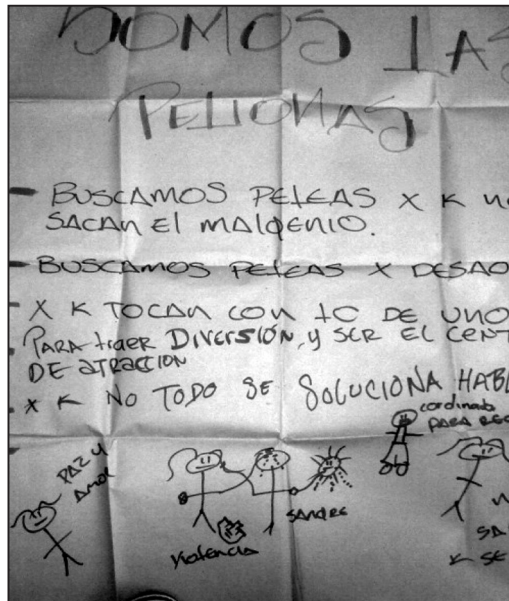 SOMOS LAS
PELIONAS
- BUSCAMOS PELEAS X K
SACAN El MALGENIO.
- BUSCAMOS PELEAS X DESAO
- X K TOCAN CON LO DE UNO
- PARA traer DIVERSIÓN, y SER EL CENT
DE ATRACCION
- X K NO TODO SE SOLUCIONA HABL
cordinado
PARA REC
PAZ Y
Amor
SANGRE
Violencia
SA
K SE